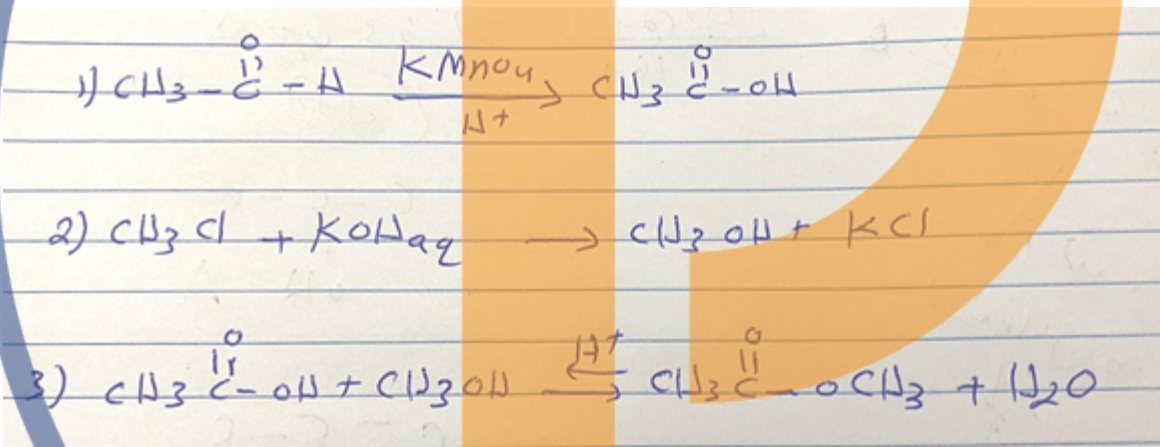 1) CH3 - C(=O) - H —KMnO4 / H+→ CH3 C(=O) - OH
2) CH3Cl + KOHaq → CH3OH + KCl
3) CH3 C(=O) - OH + CH3OH ⇌ H+ CH3 C(=O) - OCH3 + H2O